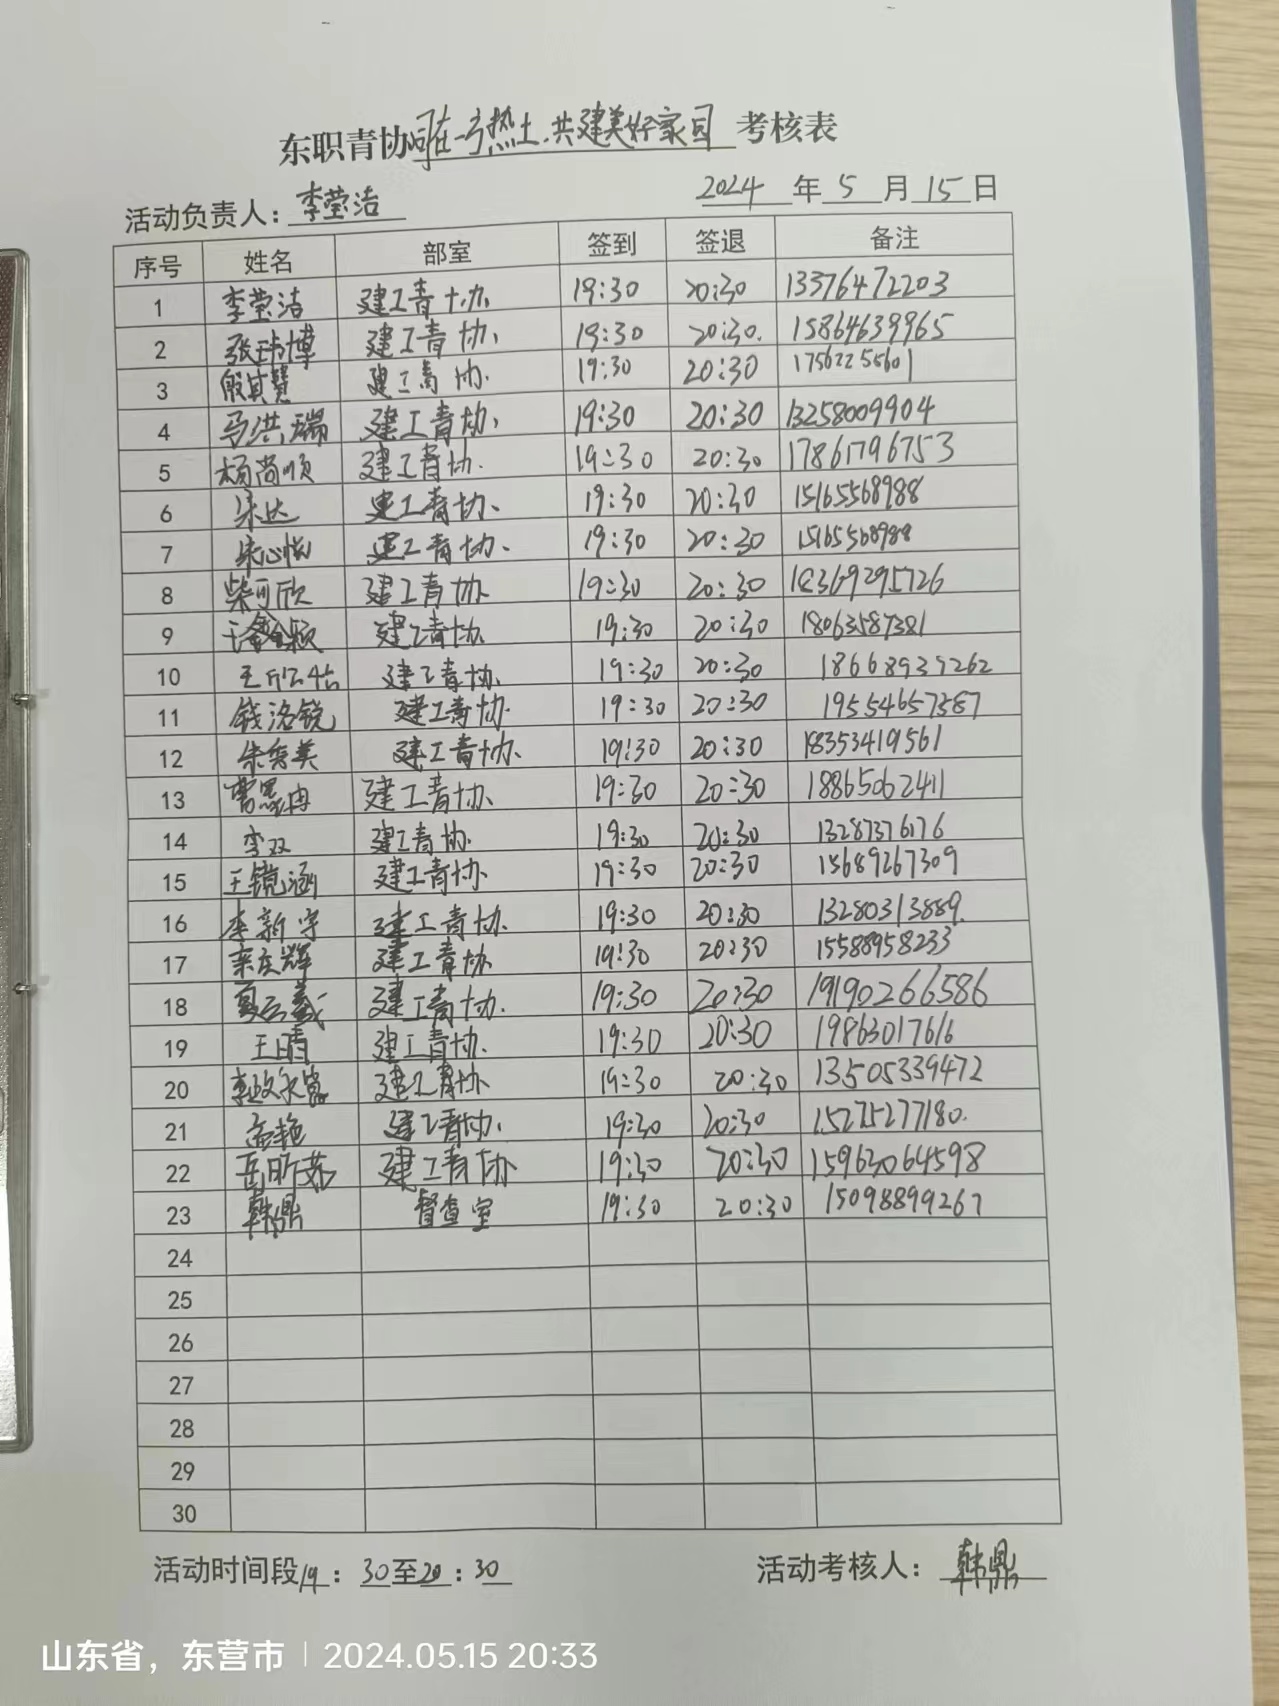 东职青协同在一方热土,共建美好家园考核表
活动负责人:李莹洁 2024年5月15日
序号 姓名 部室 签到 签退 备注
1 李莹洁 建工青协 19:30 20:30 13376472203
2 张玮博 建工青协 19:30 20:30 15864639965
3 殷其慧 建工青协 19:30 20:30 17562255601
4 马洪瑞 建工青协 19:30 20:30 13258009904
5 杨尚顺 建工青协 19:30 20:30 17861796753
6 朱达 建工青协 19:30 20:30 15165568988
7 朱心悦 建工青协 19:30 20:30 15165568988
8 柴可欣 建工青协 19:30 20:30 18369295726
9 建工青协 19:30 20:30 18063587381
10 建工青协 19:30 20:30 18668939262
11 钱洛锐 建工青协 19:30 20:30 19554657587
12 朱秀美 建工青协 19:30 20:30 18353419561
13 建工青协 19:30 20:30 18865062411
14 李双 建工青协 19:30 20:30 13287376176
15 王镜涵 建工青协 19:30 20:30 15689267309
16 李新宇 建工青协 19:30 20:30 13280313889
17 栾庆辉 建工青协 19:30 20:30 15588958233
18 建工青协 19:30 20:30 19190266586
19 王晴 建工青协 19:30 20:30 19863017616
20 建工青协 19:30 20:30 13505339472
21 孟艳 建工青协 19:30 20:30 15275277180
22 岳昕茹 建工青协 19:30 20:30 15963064598
23 韩鼎 督查室 19:30 20:30 15098899267
24
25
26
27
28
29
30
活动时间段19:30至20:30 活动考核人:韩鼎
山东省,东营市 | 2024.05.15 20:33